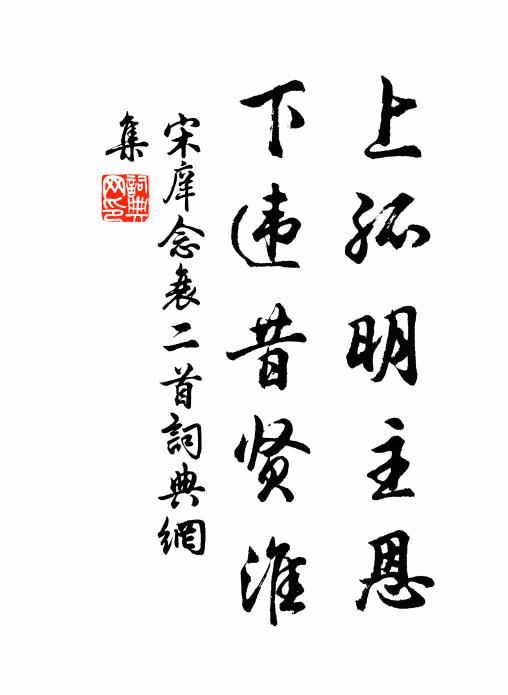 上孤明主恩
下违昔贤淮
宋庠念衰二首詞典網
集
詞典网印